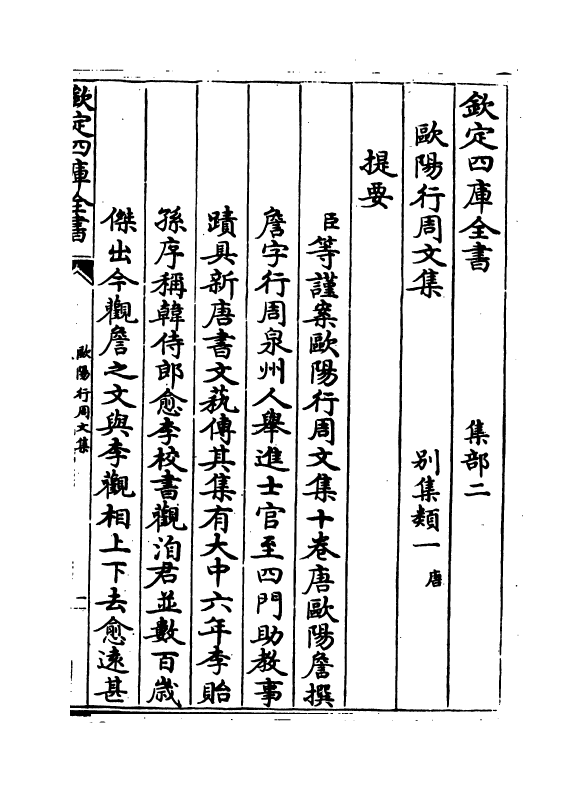 欽定四庫全書　集部二
歐陽行周文集　別集類一唐
提要
臣等謹案歐陽行周文集十卷唐歐陽詹撰
詹字行周泉州人舉進士官至四門助教事
蹟具新唐書文蓺傳其集有大中六年李貽
孫序稱韓侍郎愈李校書觀洎君並數百歲
傑出今觀詹之文與李觀相上下去愈逺甚
欽定四庫全書
歐陽行周文集